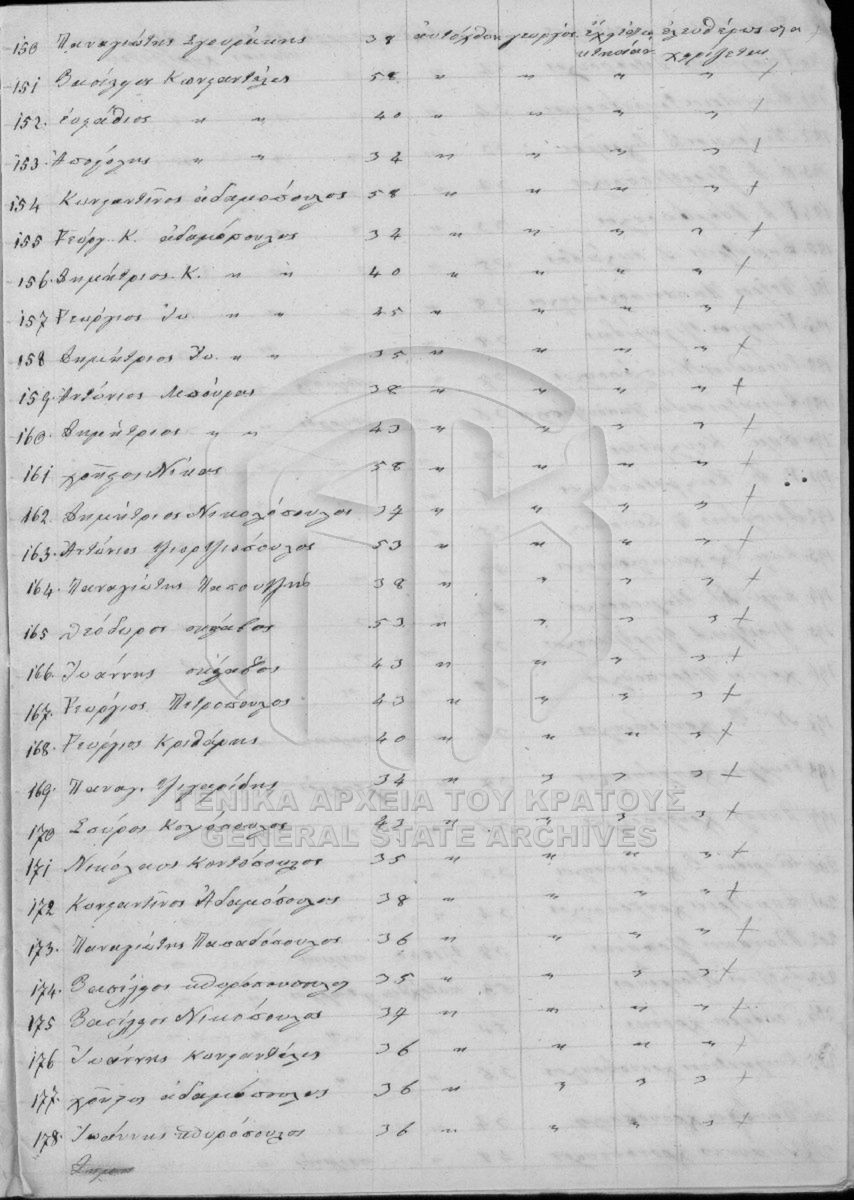 150 Παναγιώτης Σγουράκης 38 αυτόχθων γεωργός έχει ιδιο ελευθέρως ολα
κτησίαν χαρίζεται
151 Βασίλειος Κωνσταντέλος 58 " " " " +
152. Ευστάθιος " " 40 " " " " +
153. Αποστόλης " " 34 " " " " +
154 Κωνσταντίνος Αδαμόπουλος 58 " " " " +
155 Γεώργ. Κ. αδαμόπουλος 34 " " " " +
156. Δημήτριος Κ. " " 40 " " " " +
157 Γεώργιος Ιω. " " 45 " " " " +
158 Δημήτριος Ιω. " " 35 " " " " +
159. Αντώνιος Λεπούρας 38 " " " " +
160. Δημήτριος " " 43 " " " " +
161 χρήστος Νίκας 58 " " " " +
162. Δημήτριος Νικολόπουλος 34 " " " " +
163. Αντώνιος Γιορτζιόπουλος 53 " " " " +
164. Παναγιώτης 38 " " " " +
165 Θεόδωρος 53 " " " " +
166. Ιωάννης 43 " " " " +
167. Γεώργιος Πετρόπουλος 43 " " " " +
168. Γεώργιος Κριθάρης 40 " " " " +
169. Παναγ. 34 " " " " +
ΓΕΝΙΚΑ ΑΡΧΕΙΑ ΤΟΥ ΚΡΑΤΟΥΣ
170 Σπύρος 43 " " " " +
GENERAL STATE ARCHIVES
171 Νικόλαος Κοντόπουλος 35 " " " " +
172 Κωνσταντίνος Αδαμόπουλος 38 " " " " +
173. Παναγιώτης Παπαδόπουλος 36 " " " " +
174. Βασίλειος 35 " " " " +
175 Βασίλειος Νικόπουλος 34 " " " " +
176 Ιωάννης Κωνσταντέλος 36 " " " " +
177. χρήστος αδαμόπουλος 36 " " " " +
178. Ιωάννης 36 " " " " +